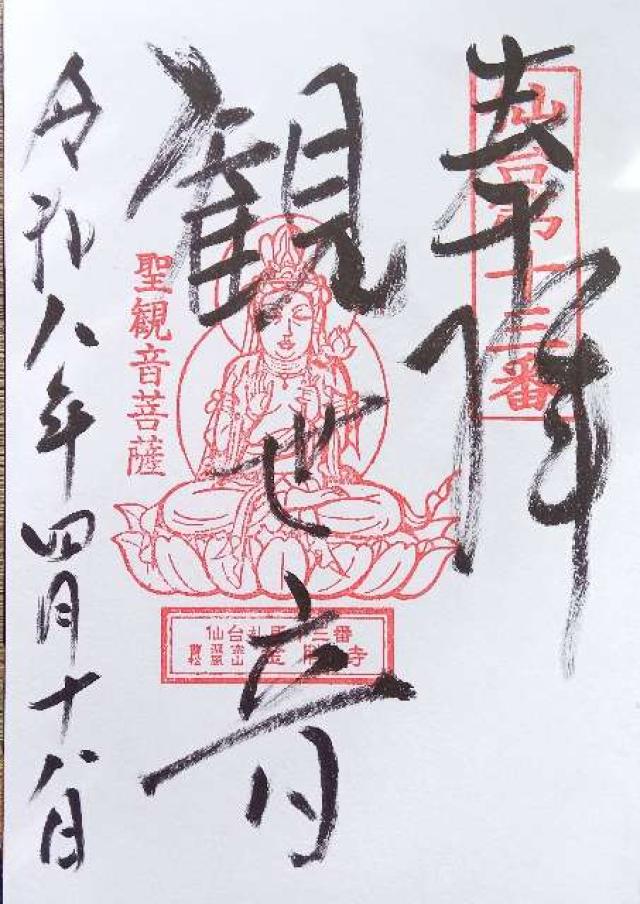 奉拝
仙台第十三番
観世音
聖観音菩薩
仙台札所十三番
令和八年四月十八日